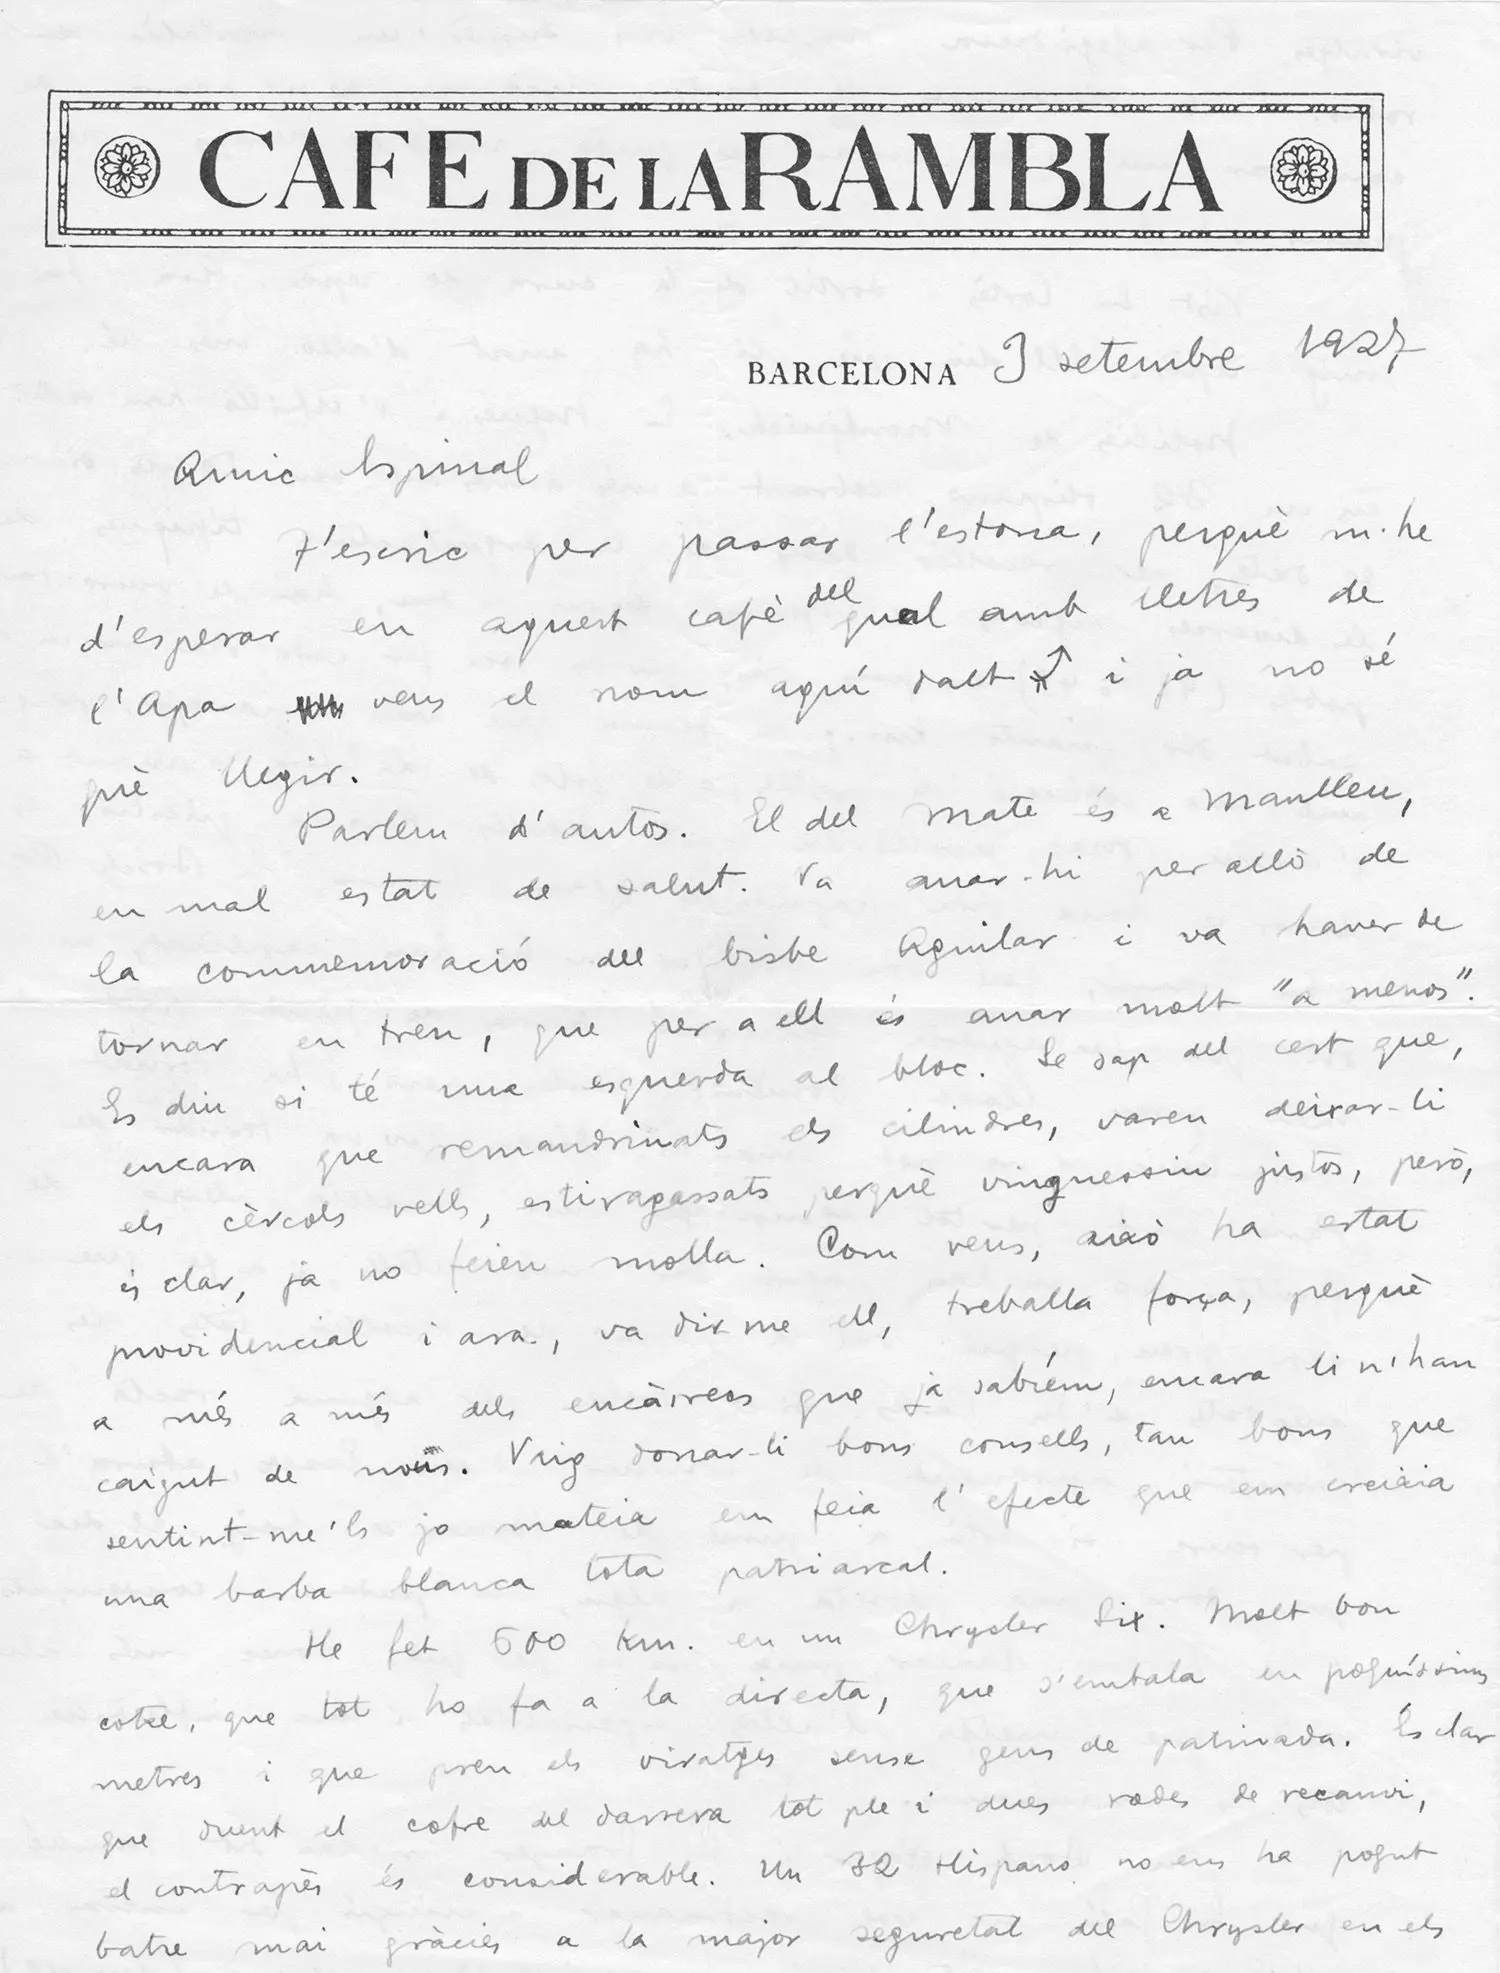 CAFE DE LA RAMBLA
BARCELONA 3 setembre 1927
Amic Espinal
T'escric per passar l'estona, perquè m'he
d'esperar en aquest cafè del qual amb lletres de
l'Apa veus el nom aquí dalt i ja no sé
què llegir.
Parlem d'autos. El del Mate és a Manlleu,
en mal estat de salut. Va anar-hi per allò de
la commemoració del bisbe Aguilar i va haver de
tornar en tren, que per a ell és anar molt "a menos".
Es diu si té una esquerda al bloc. Se sap del cert que,
encara que remandrinats els cilindres, varen deixar-li
els cèrcols vells, estiragassats perquè vinguessin justos, però,
és clar, ja no feien molla. Com veus, això ha estat
providencial i ara, va dir-me ell, treballa força, perquè
a més a més dels encàrrecs que ja sabíem, encara li n'han
caigut de nous. Vaig donar-li bons consells, tan bons que
sentint-me'ls jo mateix em feia l'efecte que em creixia
una barba blanca tota patriarcal.
He fet 600 km. en un Chrysler Six. Molt bon
cotxe, que tot ho fa a la directa, que s'embala en poquíssims
metres i que pren els viratges sense gens de patinada. És clar
que duent el cofre del darrera tot ple i dues rodes de recanvi,
el contrapès és considerable. Un 32 Hispano no ens ha pogut
batre mai gràcies a la major seguretat del Chrysler en els